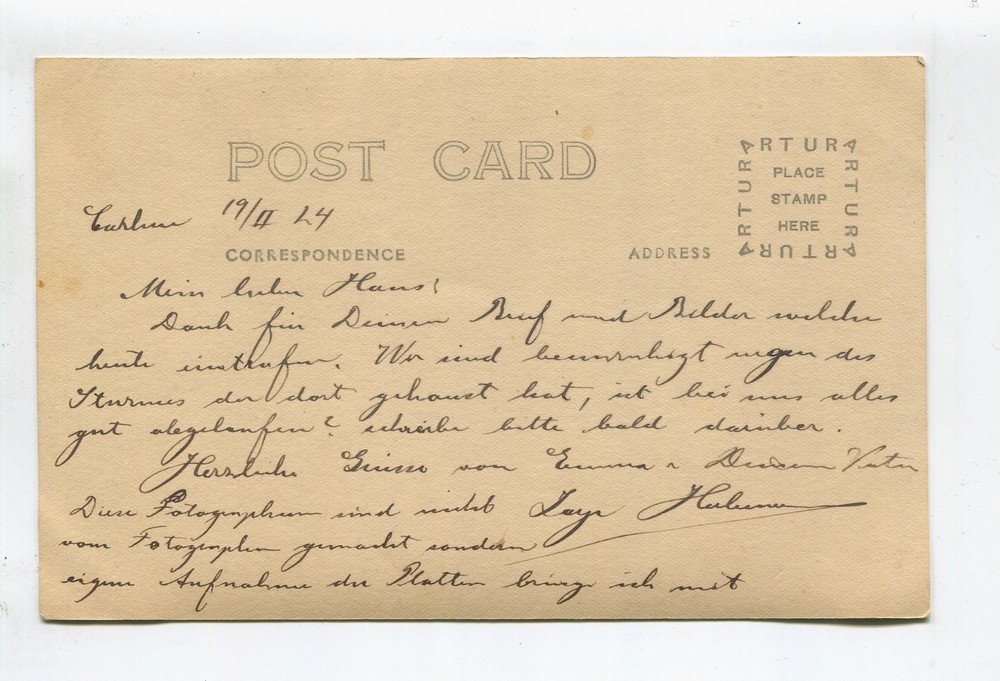 POST CARD
ARTURA ARTURA ARTURA ARTURA
PLACE
STAMP
HERE
19/II 24
CORRESPONDENCE
ADDRESS
Mein lieber Hans!
Dank für Deinen Brief und Bilder welche
heute eintrafen. Wir sind beunruhigt wegen des
Sturmes der dort gehaust hat, ist bei uns alles
gut abgelaufen? schreibe bitte bald darüber.
Herzliche Grüsse von Emma u Deinem Vater
Diese Fotographien sind nicht
vom Fotographen gemacht sondern
eigene Aufnahme die Platten bringe ich mit